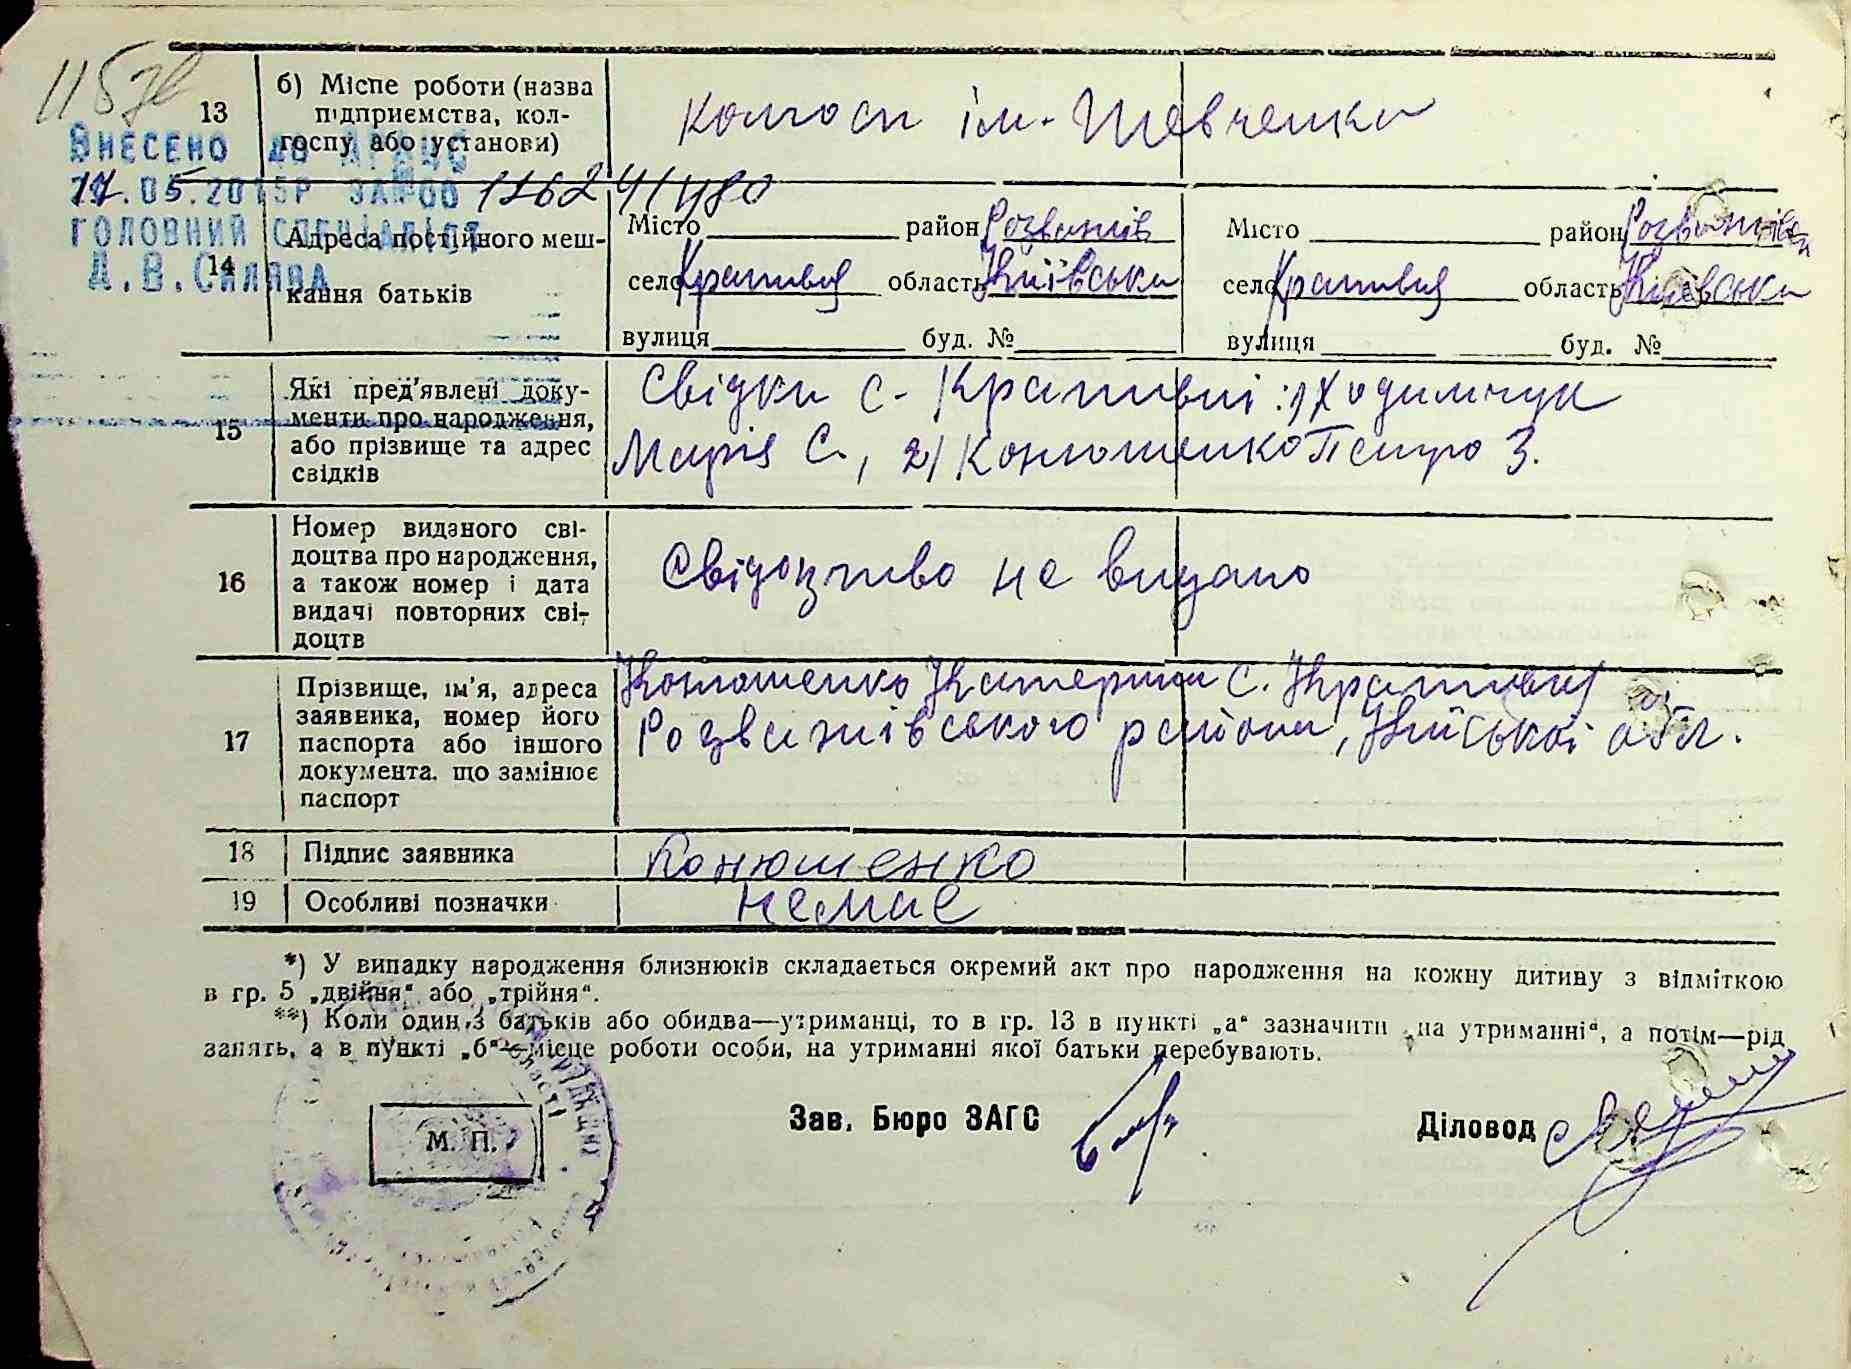 1157
13
б) Місце роботи (назва
підприємства, кол-
госпу або установи)
Колгосп ім. Шевченка
ВНЕСЕНО ДО ДРАЦС
17.05.2015Р ЗА №00 11624/1480
ГОЛОВНИЙ СПЕЦІАЛІСТ
Д.В.СИЛЯВА
14
Адреса постійного меш-
кання батьків
Місто район Розважів Місто район Розважівськ
село Кративня область Київська село Кративня область Київська
вулиця буд. № вулиця буд. №
15
Які пред'явлені доку-
менти про народження,
або прізвище та адрес
свідків
Свідки с. Кративні: 1) Ходимчук
Марія С., 2) Конюшенко Петро З.
16
Номер виданого сві-
доцтва про народження,
а також номер і дата
видачі повторних сві-
доцтв
Свідоцтво не видано
17
Прізвище, ім'я, адреса
заявника, номер його
паспорта або іншого
документа, що замінює
паспорт
Конюшенко Катерина с. Кративня
Розважівського района, Київської обл.
18 Підпис заявника Конюшенко
19 Особливі позначки немає
*) У випадку народження близнюків складається окремий акт про народження на кожну дитину з відміткою
в гр. 5 „двійня“ або „трійня“.
**) Коли один з батьків або обидва—утриманці, то в гр. 13 в пункті „а“ зазначити „на утриманні“, а потім—рід
занять, а в пункті „б“—місце роботи особи, на утриманні якої батьки перебувають.
М. П. Зав. Бюро ЗАГС Діловод